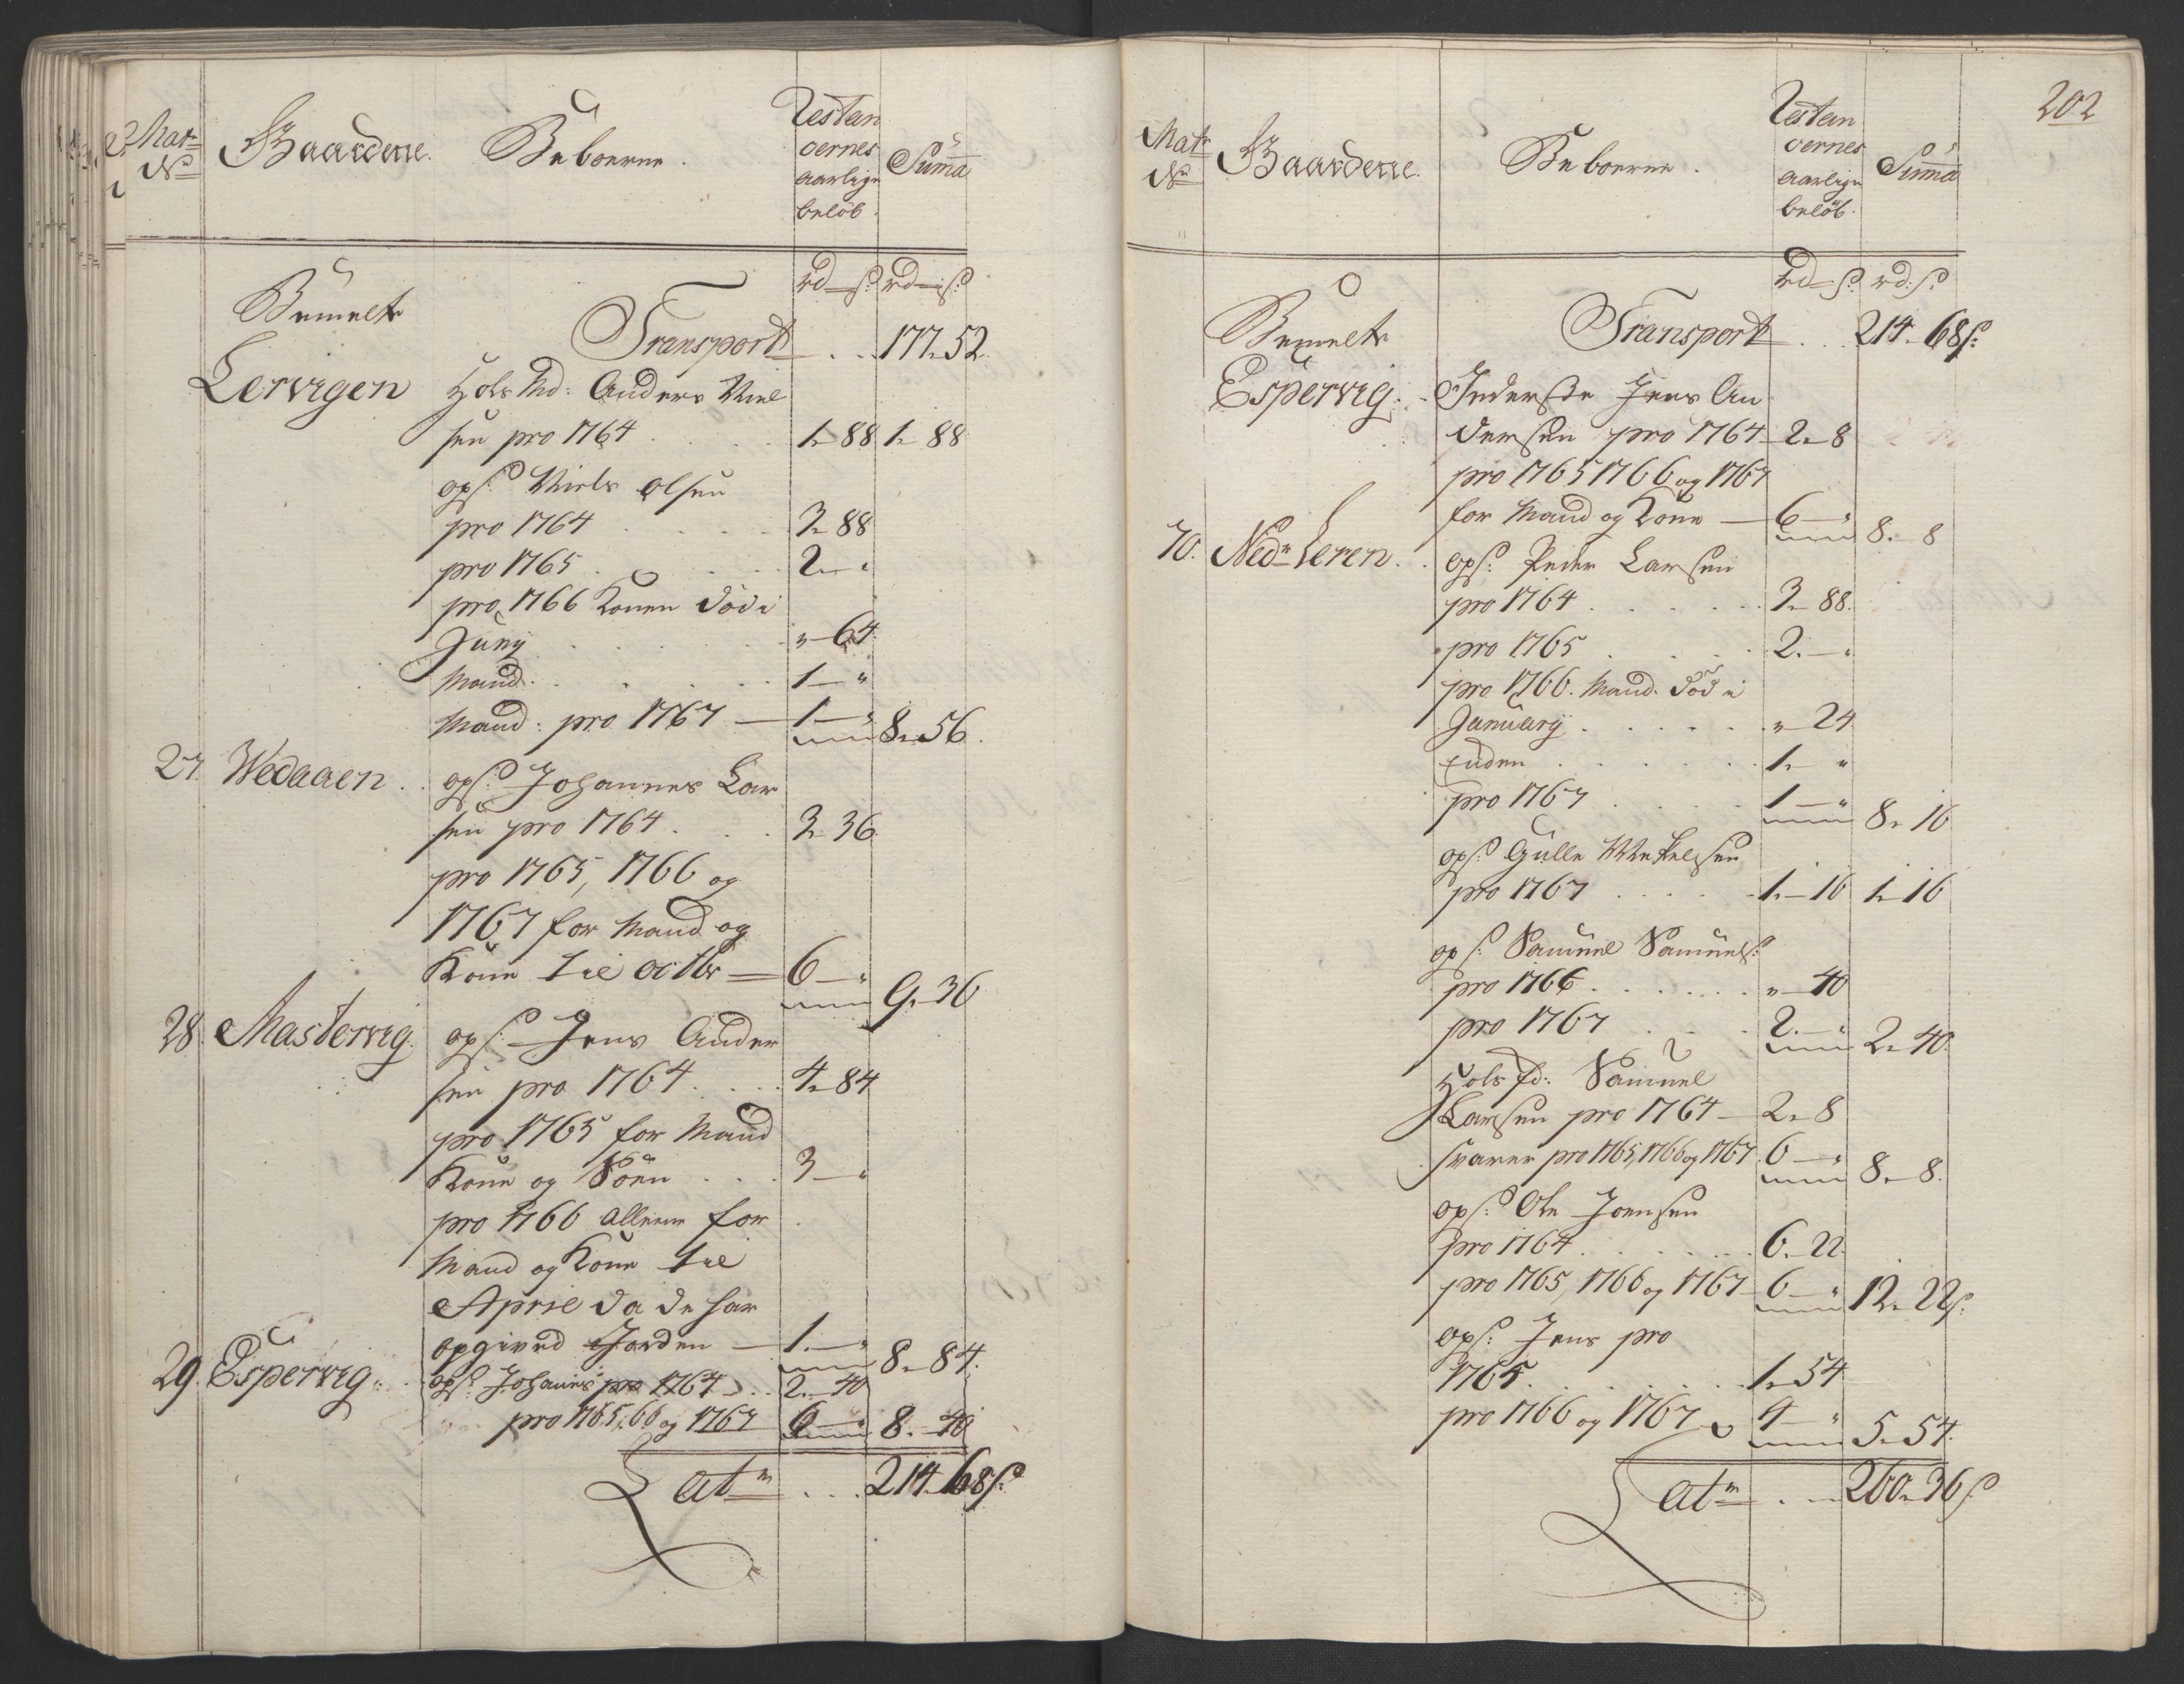 Matr No
Gaardene.
Beboerne.
Restan
cernes
aarlige
beløb.
Summa
rd ß rd ß
Bemelte
Transport . . 177. 52.
Lervigen
Huusmd: Anders Niel
sen pro 1764 . . . . 1. 88 1. 88
ops: Niels Olsen
pro 1764 . . . . 3. 88
pro 1765 . . . . 2. "
pro 1766 Konen død i
Junij . . . . " 64
Mand . . . . 1 "
Mand: pro 1767 — 1 " 8. 56.
27. Wedaaen . . ops: Johannes Lar
sen pro 1764 . . . 3. 36
pro 1765, 1766 og
1767 for Mand og
Kone til octbr = 6 " 9. 36
28. Mastervig. ops: Jens Ander
sen pro 1764 . . . . 4. 84
pro 1765 for Mand
Kone og Søn . . . 3 "
pro 1766 alleene for
Mand og Kone til
April da de har
opgived Jorden — 1. " 8. 84.
29. Espervig . . ops: Johanes pro 1764 . . 2. 40
pro 1765, 66 og 1767 6 " 8. 40
Latr . . . 214. 68 ß
202
Matr No
Gaardene.
Beboerne.
Restan
cernes
aarlige
beløb.
Summa
rd ß rd: ß
Bemelte
Transport . . . 214. 68 ß:
Espervig . . Inderste Jens An
dersen pro 1764 2. 8
pro 1765 1766 og 1767
for Mand og Kone — 6 " 8. 8
30. Nedr Leren . . ops: Peder Larsen
pro 1764 . . . . . 3. 88.
pro 1765 . . . . 2. "
pro 1766. Mand. død i
January . . . . . " 24
Enken . . . . . 1. "
pro 1767 . . . . 1 " 8. 16
ops: Gulle Mikkelsen
pro 1767 . . . . . 1. 16 1. 16
ops: Samuel Samuels:
pro 1766 . . . . . . " 40
pro 1767 . . . 2. " 2. 40.
Samuel
Larsen pro 1764 — 2. 8
svarer pro 1765, 1766 og 1767. 6 " 8. 8.
ops: Ole Joensen
pro 1764 . . . . . . 6. 22.
pro 1765, 1766 og 1767 6 " 12. 22 ß:
ops: Jens pro
1765 . . . . . . . 1. 54
pro 1766 og 1767 4 " 5. 54.
Latr . . — 260. 36 ß